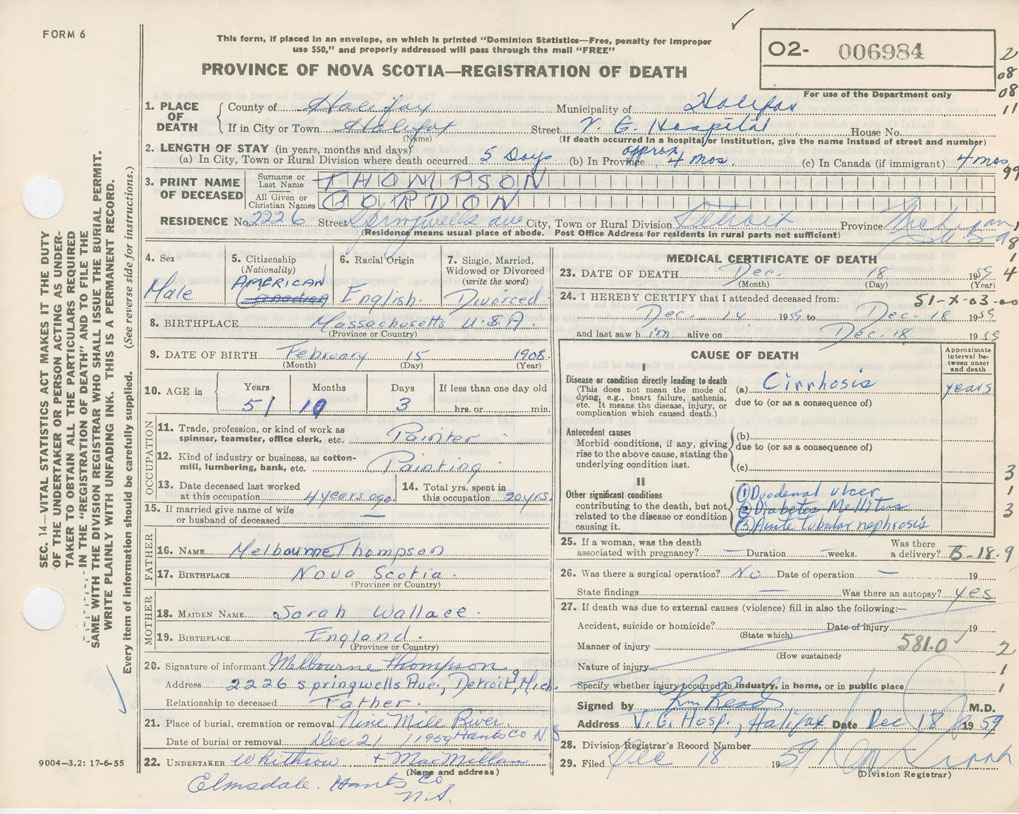 FORM 6
This form, if placed in an envelope, on which is printed "Dominion Statistics—Free, penalty for improper
use $50," and properly addressed will pass through the mail "FREE"
PROVINCE OF NOVA SCOTIA—REGISTRATION OF DEATH
O2- 006984
For use of the Department only
2
08
08
11
99
1. PLACE OF DEATH County of Halifax Municipality of Halifax
If in City or Town Halifax Street V. G. Hospital House No.
(Name) (If death occurred in a hospital or institution, give the name instead of street and number)
2. LENGTH OF STAY (in years, months and days)
(a) In City, Town or Rural Division where death occurred 5 Days (b) In Province approx 4 mos. (c) In Canada (if immigrant) 4 mos
3. PRINT NAME OF DECEASED Surname or Last Name THOMPSON
All Given or Christian Names GORDON
RESIDENCE No. 2226 Street Springwells ave City, Town or Rural Division Detroit Province Michigan
U.S.A
(Residence means usual place of abode. Post Office Address for residents in rural parts not sufficient)
4. Sex Male
5. Citizenship (Nationality) AMERICAN Canadian
6. Racial Origin English.
7. Single, Married, Widowed or Divorced (write the word) Divorced
8. BIRTHPLACE Massachusetts U.S.A.
(Province or Country)
9. DATE OF BIRTH February 15 1908
(Month) (Day) (Year)
10. AGE in Years 51 Months 10 Days 3 If less than one day old hrs. or min.
OCCUPATION
11. Trade, profession, or kind of work as spinner, teamster, office clerk, etc. Painter
12. Kind of industry or business, as cotton-mill, lumbering, bank, etc. Painting.
13. Date deceased last worked at this occupation 4 years ago. 14. Total yrs. spent in this occupation 20 yrs.
15. If married give name of wife or husband of deceased —
FATHER
16. NAME Melbourne Thompson
17. BIRTHPLACE Nova Scotia.
(Province or Country)
MOTHER
18. MAIDEN NAME Sarah Wallace.
19. BIRTHPLACE England.
(Province or Country)
20. Signature of informant Melbourne Thompson
Address 2226 Springwells Ave., Detroit, Mich.
Relationship to deceased Father.
21. Place of burial, cremation or removal Nine Mile River.
Date of burial or removal Dec 21 1959 Hants Co N S
22. UNDERTAKER Whithrow + MacMillan
(Name and address)
Elmsdale. Hants Co
N.S.
MEDICAL CERTIFICATE OF DEATH
23. DATE OF DEATH Dec. 18 1959
(Month) (Day) (Year)
24. I HEREBY CERTIFY that I attended deceased from: 51-X-03-00
Dec. 14 1959 to Dec-18 1959
and last saw him alive on Dec-18 1959
CAUSE OF DEATH
Approximate interval between onset and death
I
Disease or condition directly leading to death (a) Cirrhosis years
(This does not mean the mode of dying, e.g., heart failure, asthenia, etc. It means the disease, injury, or complication which caused death.) due to (or as a consequence of)
Antecedent causes (b)
Morbid conditions, if any, giving rise to the above cause, stating the underlying condition last. due to (or as a consequence of)
(c)
II
Other significant conditions contributing to the death, but not related to the disease or condition causing it.
(1) Duodenal ulcer
(2) Diabetes Mellitus
(3) Acute tubular nephrosis
3
1
3
25. If a woman, was the death associated with pregnancy? — Duration — weeks. Was there a delivery? B-18-9
26. Was there a surgical operation? No Date of operation — 19
State findings — Was there an autopsy? yes.
27. If death was due to external causes (violence) fill in also the following:—
Accident, suicide or homicide? Date of injury 19
(State which)
Manner of injury 581.0 2
(How sustained)
Nature of injury 1
Specify whether injury occurred in industry, in home, or in public place 1
Signed by M.D.
Address V. G. Hosp., Halifax Date Dec 18 1959
28. Division Registrar's Record Number
29. Filed Dec 18 1959
(Division Registrar)
9004—3.2: 17-6-55
SEC. 14—VITAL STATISTICS ACT MAKES IT THE DUTY
OF THE UNDERTAKER OR PERSON ACTING AS UNDER-
TAKER TO OBTAIN ALL THE PARTICULARS REQUIRED
IN THE "REGISTRATION OF DEATH" AND TO FILE THE
SAME WITH THE DIVISION REGISTRAR WHO SHALL ISSUE THE BURIAL PERMIT.
WRITE PLAINLY WITH UNFADING INK. THIS IS A PERMANENT RECORD.
Every item of information should be carefully supplied. (See reverse side for instructions.)